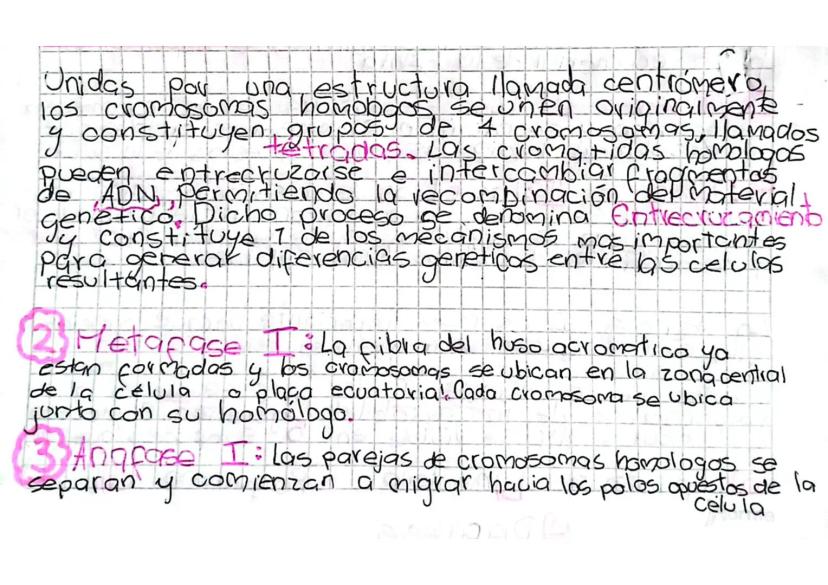 Unidas por una estructura llamada centrómero,
los cromosomas homologos se unen originalmente
y constituyen grupos de 4 cromosomas, llamados
tétradas. Las cromatidas homologas
pueden entrecruzarse e intercambiar fragmentos
de ADN, permitiendo la recombinación del material
genético. Dicho proceso se denomina Entrecruzamiento
y constituye 1 de los mecanismos mas importantes
para generar diferencias geneticas entre las celulas
resultantes.
2 Metafase I: La fibra del huso acromatico ya
estan formadas y los cromosomas se ubican en la zona central
de la célula o placa ecuatorial. Cada cromosoma se ubica
junto con su homólogo.
3 Anafase I: Las parejas de cromosomas homologos se
separan y comienzan a migrar hacia los polos opuestos de la
celula